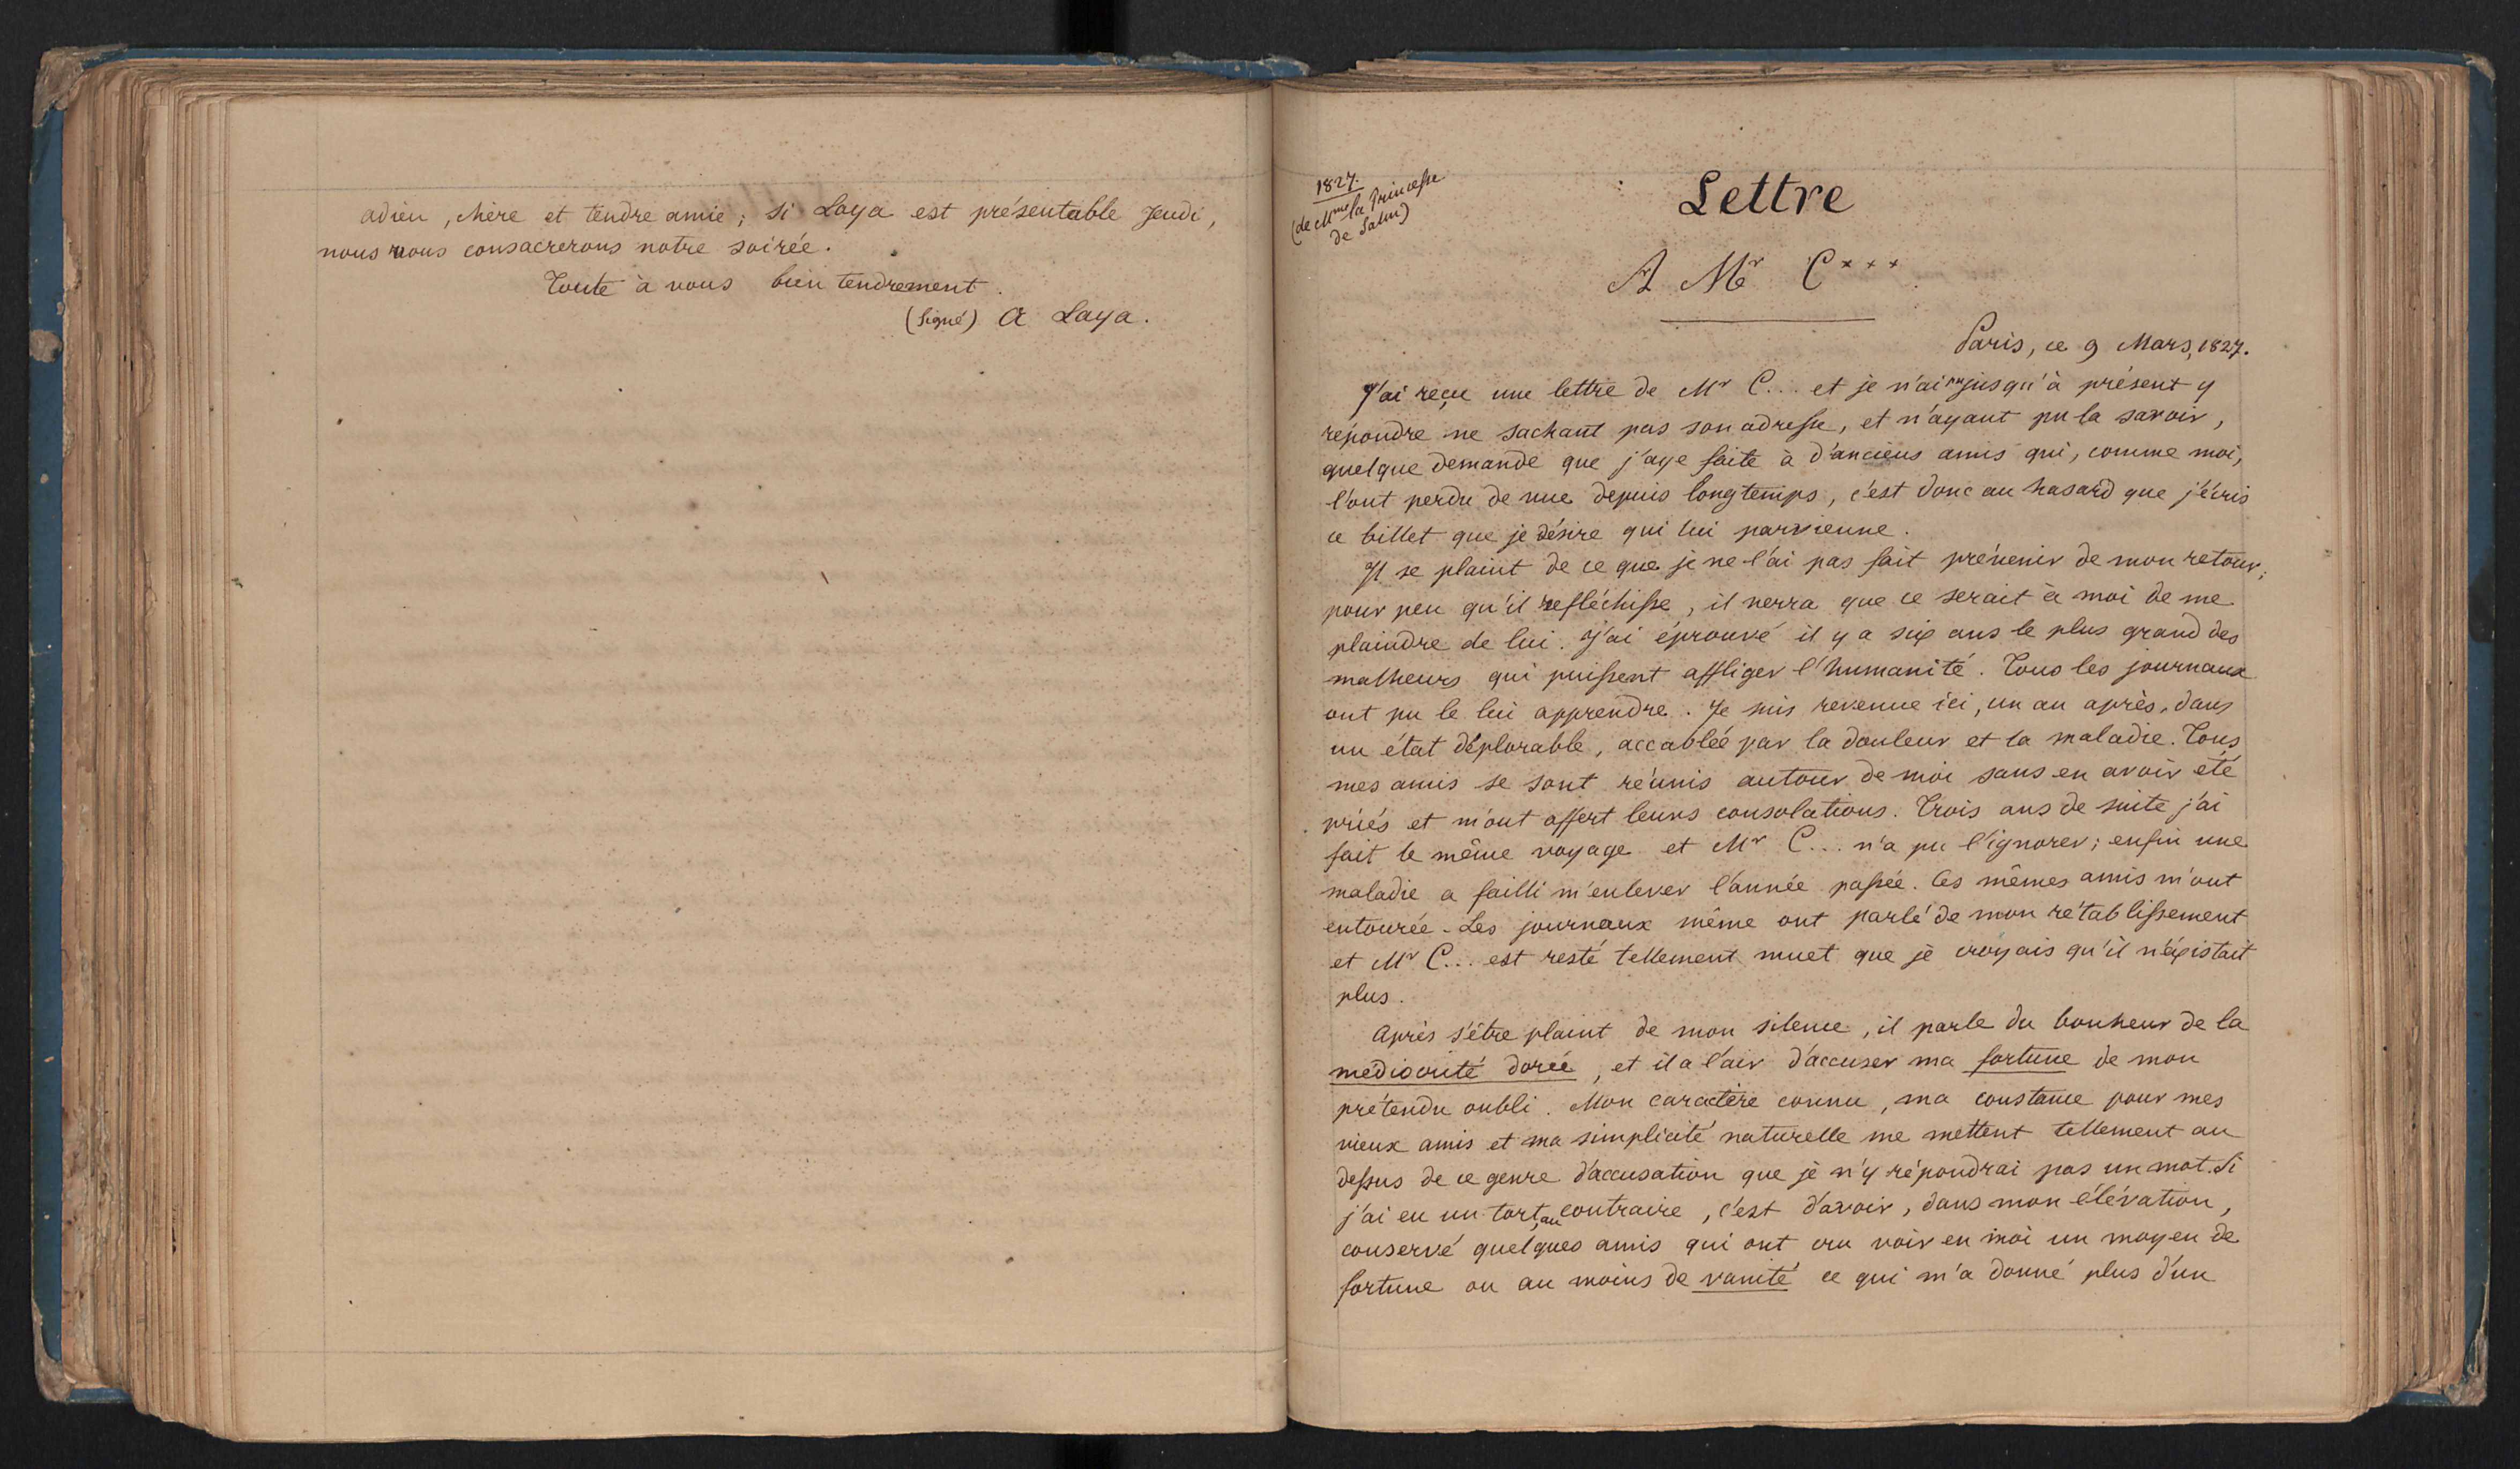 adieu, chère et tendre amie; si Laya est présentable Jeudi,
nous vous consacrerons notre soirée.
Toute à vous bien tendrement.
(Signé) A Laya.
1827.
(de Mme la Princesse
de Salm)
Lettre
A Mr C***
Paris, ce 9 Mars, 1827.
J'ai reçu une lettre de Mr C... et je n'ai pu jusqu'à présent y
répondre ne sachant pas son adresse, et n'ayant pu la savoir,
quelque demande que j'aye faite à d'anciens amis qui, comme moi,
l'ont perdu de vue depuis longtemps, c'est donc au hasard que j'écris
ce billet que je désire qui lui parvienne.
Il se plaint de ce que je ne l'ai pas fait prévenir de mon retour;
pour peu qu'il refléchisse, il verra que ce serait à moi de me
plaindre de lui. J'ai éprouvé il y a six ans le plus grand des
malheurs qui puissent affliger l'humanité. Tous les journaux
ont pu le lui apprendre. Je suis revenue ici, un an après, dans
un état déplorable, accablée par la douleur et la maladie. Tous
mes amis se sont réunis autour de moi sans en avoir été
priés et m'ont offert leurs consolations. Trois ans de suite j'ai
fait le même voyage et Mr C... n'a pu l'ignorer; enfin une
maladie a failli m'enlever l'année passée. Ces mêmes amis m'ont
entourée. Les journaux même ont parlé de mon rétablissement
et Mr C... est resté tellement muet que je croyais qu'il n'existait
plus.
Après s'être plaint de mon silence, il parle du bonheur de la
médiocrité dorée, et il a l'air d'accuser ma fortune de mon
prétendu oubli. Mon caractère connu, ma constance pour mes
vieux amis et ma simplicité naturelle me mettent tellement au
dessus de ce genre d'accusation que je n'y répondrai pas un mot. Si
j'ai eu un tort, au contraire, c'est d'avoir, dans mon élévation,
conservé quelques amis qui ont cru voir en moi un moyen de
fortune ou au moins de vanité ce qui m'a donné plus d'un